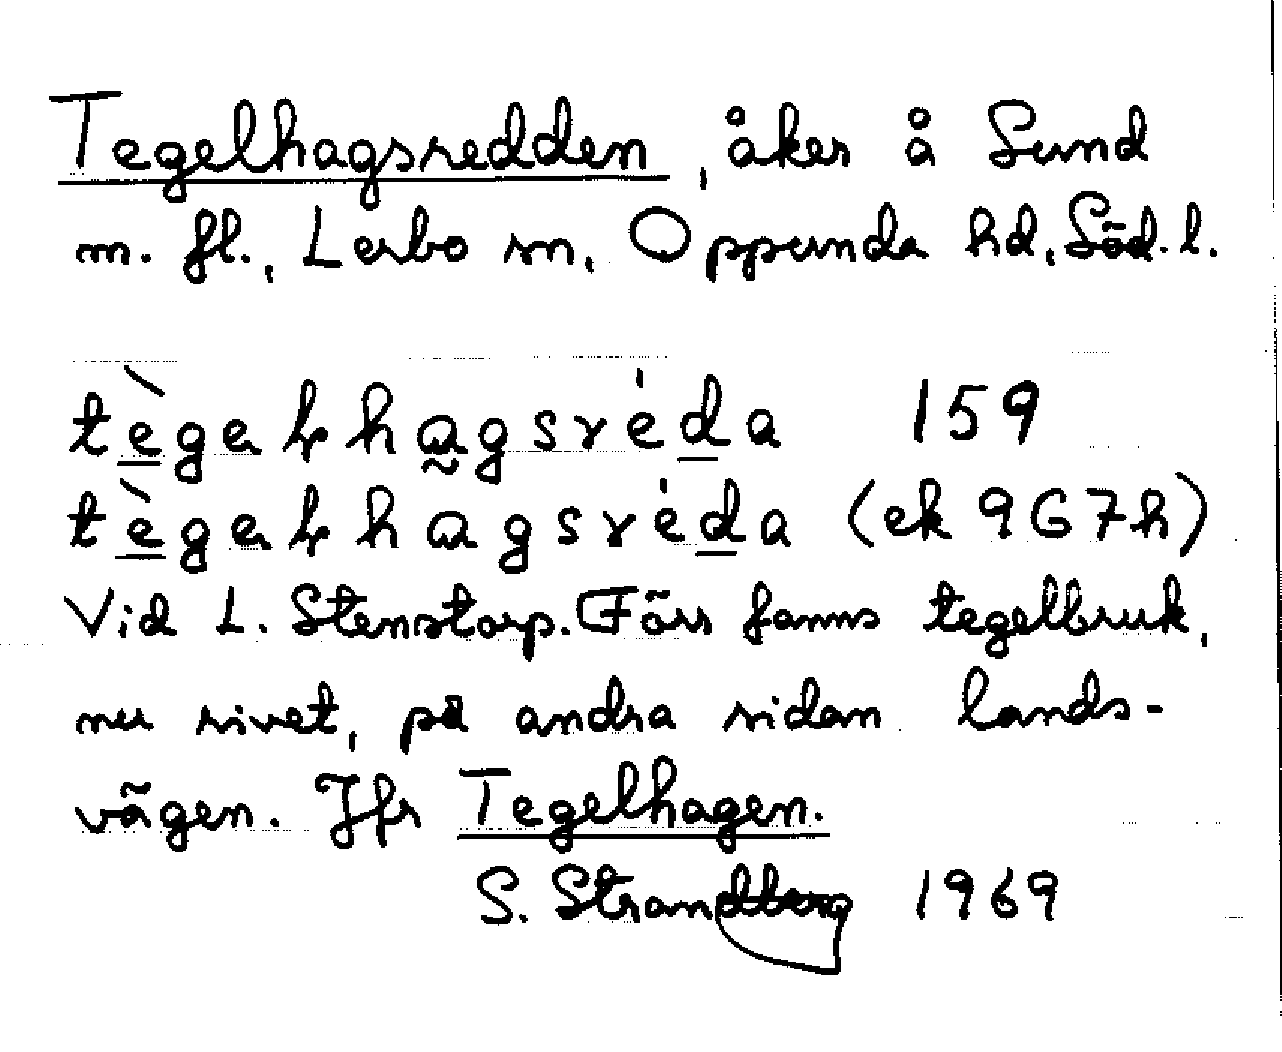 Tegelhagsredden, åker å Sund
m. fl., Lerbo sn, Oppunda hd, Söd. l.
tègeɫhagsréda 159
tègeɫhagsréda (ek 967h)
Vid L. Stenstorp. Förr fanns tegelbruk,
nu rivet, på andra sidan lands-
vägen. Jfr Tegelhagen.
S. Strandberg 1969